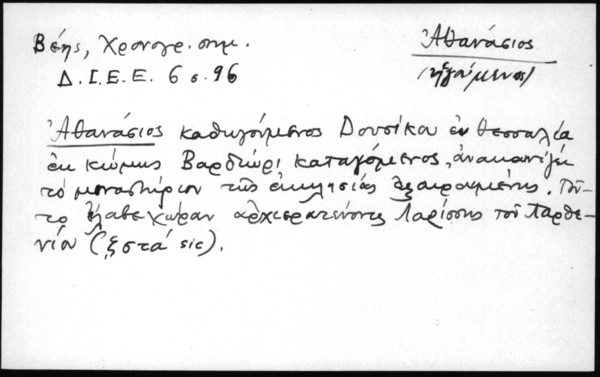 Βέης, Χρονογρ. σημ.
Δ.Ι.Ε.Ε. 6 σ. 96
Ἀθανάσιος
(ἡγούμενος)
Ἀθανάσιος καθηγόμενος Δουσίκου ἐν Θεσσαλίᾳ
ἐκ κώμης καταγόμενος, ἀνακαινίζει
τὸ μοναστήριον τῆς ἐκκλησίας ἐξαιρουμένης. Τοῦ-
το ἔλαβε χώραν ἀρχιερατεύοντος Λαρίσσης τοῦ Παρθε-
νίου (sic).